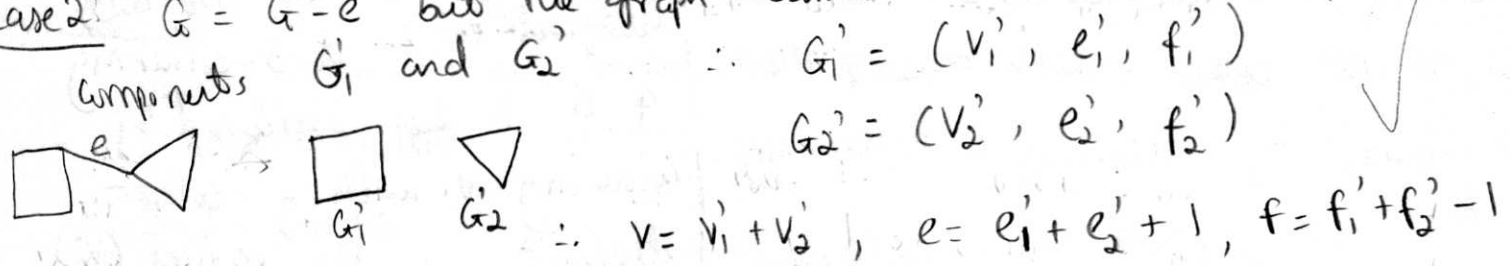 Case 2. G' = G - e but the graph
components G₁' and G₂' ∴ G₁' = (v₁', e₁', f₁')
G₂' = (v₂', e₂', f₂')
e
G₁' G₂' ∴ v = v₁' + v₂', e = e₁' + e₂' + 1, f = f₁' + f₂' - 1